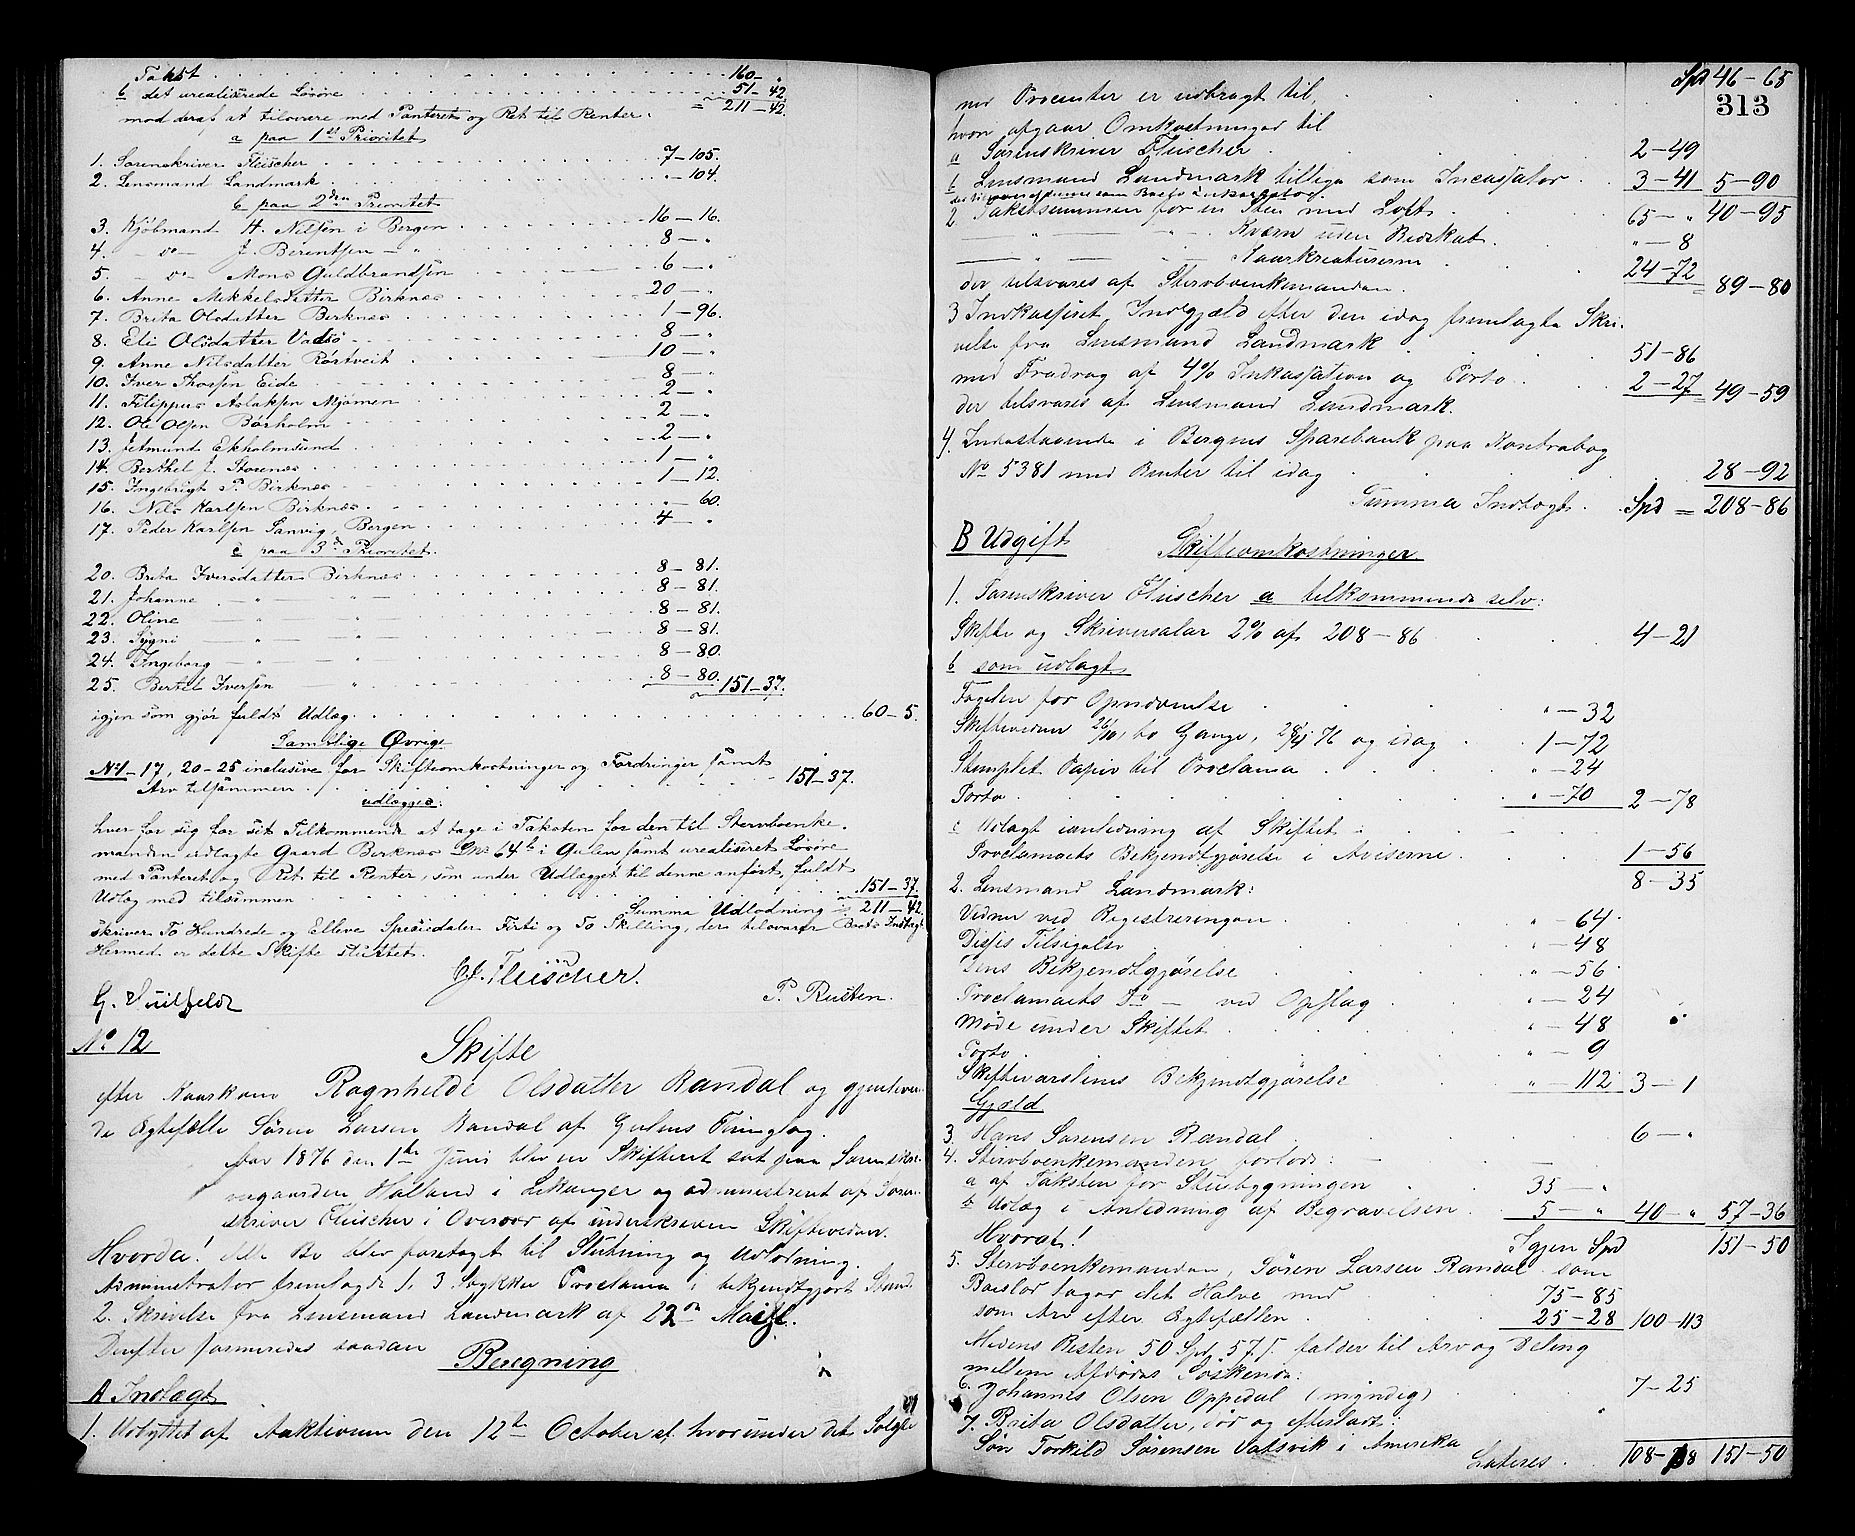 Takst 160 – "
b det urealiserede Løsøre 51 – 42
= 211 – 42.
mod deraf at tilsvare med Panteret og Ret til Renter:
a paa 1ste Prioritet
1. Sorenskriver Fleischer 7 – 105.
2. Lensmand Landmark " – 104.
b paa 2den Prioritet
3. Kjøbmand H. Nilsen i Bergen 16 – 16.
4. – do – J. Berentsen – " 8 – "
5. – do – Mons Guldbrandsen 6 – "
6. Anne Mikkelsdatter Birknæs 20 – "
7. Brita Olsdatter Birknæs 1 – 96.
8. Eli Olsdatter Vadsö 8 – "
9. Anne Nilsdatter Rørtveit 10 – "
10. Iver Thorsen Eide 8 – "
11. Filippus Aslaksen Mjömen 2 – "
12. Ole Olsen Børholm 2 – "
13. Jetmund Ekholmsund 2 – "
14. Berthel J. Storenæs 1 – "
15. Ingebrigt P. Birknæs 1 – 12.
16. Nils Karlsen Birknæs " – 60.
17. Peder Karlsen Sanvig, Bergen 4 – "
c paa 3d Prioritet.
20. Brita Iversdatter Birknæs 8 – 81.
21. Johanne – " – " – 8 – 81.
22. Oline – " – " – 8 – 81.
23. Sygni – " – " – 8 – 81.
24. Ingeborg – " – " – 8 – 80.
25. Bertel Iversen – " 8 – 80. 151 – 37.
igjen som gjør fuldt Udlæg 60 – 5.
Samtlige Øvrige
No 1 – 17, 20 – 25 inclusive for Skifteomkostninger og Fordringer samt
Arv tilsammen 151 – 37.
udlægges:
hver for sig for sit Tilkommende at tage i Taksten for den til Stervboenke-
manden udlagte Gaard Birknæs Lno 64b i Gulen samt urealiseret Løsøre
med Panteret og Ret til Renter, som under Udlægget til denne anført, fuldt
Udlæg med tilsammen 151 – 37
Summa Udlodning = 211 – 42.
skriver To Hundrede og Elleve Speciedaler Firti og To Skilling, der tilsvarer Boets Indtægt
Hermed er dette Skifte sluttet.
Fleischer.
G. P. Rusten.
No 12
Skifte
efter Kaarkone Ragnhilde Olsdatter Randal og gjenleven-
de Ægtefælle Sören Larsen Randal af Gulens Thinglag.
Aar 1876 den 1ste Juni blev en Skifteret sat paa Sorenskri-
vergaarden Holland i Lekanger og administreret af Soren-
skriver Fleischer i Overvær af underskreven Skiftevidner.
Hvorda! dette Bo blev foretaget til Slutning og Udlodning.
Administrator fremlagde 1, 3 Stykker Proclama i bekjendtgjort Stand
2. Skrivelse fra Lensmand Landmark af 22de Mai
Derefter formeredes saadan
Beregning
A Indtægt
1. Udbyttet af Auktionen den 12te October hvorunder det Solgte
Spd 46 – 65
313
med Procenter er udbragt til
hvori afgaar Omkostninger til
a Sorenskriver Fleischer 2 – 49
b Lensmand Landmark tillige som Incassator 3 – 41 5 – 90
40 – 95
2. Takstsummen for en Stue med Loft 65 – "
– " – " – Kværn uden Redskab " – 8
– " – " – Faarkreaturerne 24 – 72
der tilsvares af Stervboenkemanden. 89 – 80
3 Indkasseret Indgjæld efter den idag fremlagte Skri-
velse fra Lensmand Landmark 51 – 86
med Fradrag af 4% Inkassation og Porto 2 – 27 49 – 59
der tilsvares af Lensmand Landmark.
4. Indestaaende i Bergens Sparebank paa Kontrabog
No 5381 med Renter til idag 28 – 92
Summa Indtægt Spd = 208 – 86
B Udgift
Skifteomkostninger
1. Sorenskriver Fleischer a tilkommende selv:
Skifte og Skriversalar 2% af 208 – 86 4 – 21
b som udlagt
Fogden for Opnævnelse " – 32
Skiftevidner 26/10, to Gange, 28/4 76 og idag 1 – 72
Stemplet Papir til Proclama " – 24
Porto " – 70 2 – 78
c Udlagt i anledning af Skiftet:
Proclamaets Bekjendtgjørelse i Aviserne 1 – 56
8 – 35
2. Lensmand Landmark:
Vidner ved Registreringen " – 64.
Disses Tilsigelse " – 48
Dens Bekjendtgjørelse " – 56.
Proclamaets Do – ved Opslag " – 24
Møde under Skiftet " – 48
Porto " – 9
Skiftevarslenes Bekjendtgjørelse " – 112 3 – 1
Gjæld
3. Hans Sørensen Randal 6 – "
4. Stervboenkemanden forlods:
a af Taksten for Stuebygningen 35 – "
b Udlæg i Anledning af Begravelsen 5 – " 40 – " 57 – 36
Hvorat! Igjen Spd 151 – 50
5. Stervboenkemanden, Sören Larsen Randal som
Boeslod tager det Halve med 75 – 85
som Arv efter Ægtefællen 25 – 28 100 – 113
Medens Resten 50 Spd 57 s. falder til Arv og Deling
mellem Afdødes Söskende:
6. Johannes Olsen Oppedal (myndig) 7 – 25
7. Brita Olsdatter, død og efterladt:
Søn Torkild Sörensen Vatsvik i Amerika
Lateres 108 – 18 151 – 50